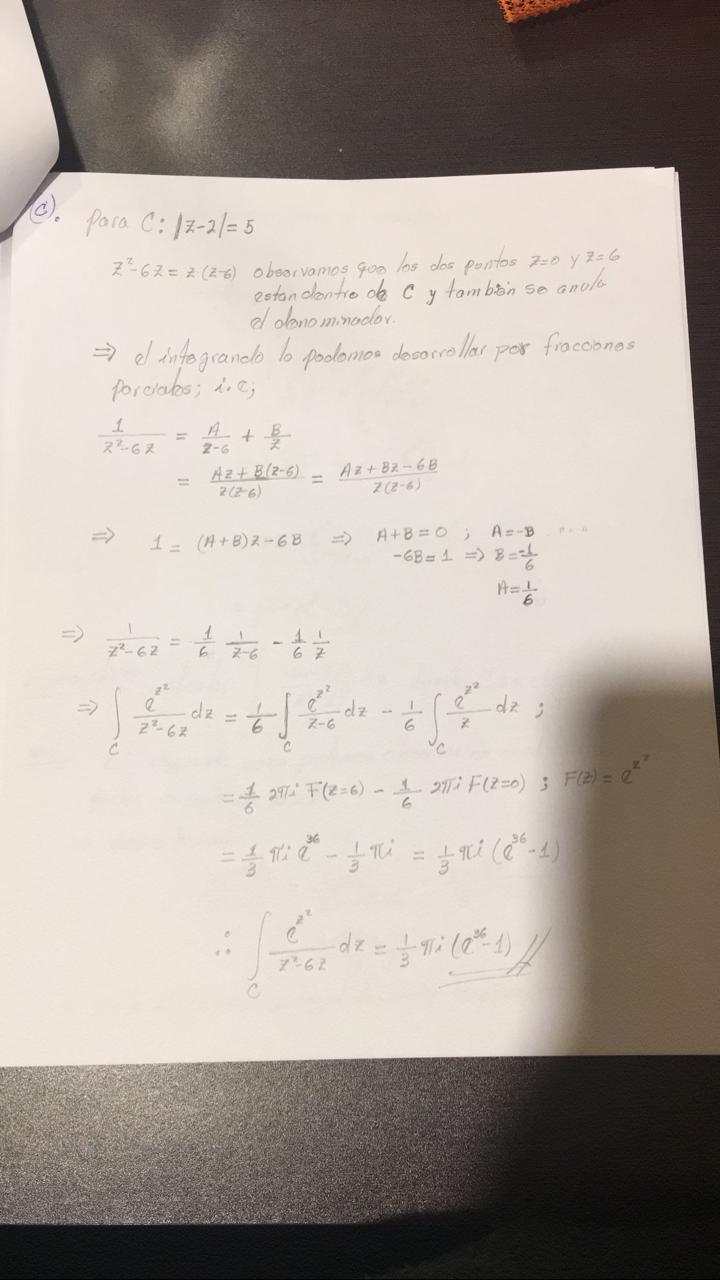 c). Para C: |z-2| = 5
z²-6z = z(z-6) observamos que los dos puntos z=0 y z=6
estan dentro de C y también se anula
el denominador.
⇒ el integrando lo podemos desarrollar por fracciones
parciales; i.e;
1/(z²-6z) = A/(z-6) + B/z
= (Az + B(z-6))/(z(z-6)) = (Az + Bz - 6B)/(z(z-6))
⇒ 1 = (A+B)z - 6B ⇒ A+B = 0 ; A = -B
-6B = 1 ⇒ B = -1/6
A = 1/6
⇒ 1/(z²-6z) = 1/6 1/(z-6) - 1/6 1/z
⇒ ∫_C e^{z²}/(z²-6z) dz = 1/6 ∫_C e^{z²}/(z-6) dz - 1/6 ∫_C e^{z²}/z dz ;
= 1/6 2πi F(z=6) - 1/6 2πi F(z=0) ; F(z) = e^{z²}
= 1/3 πi e^{36} - 1/3 πi = 1/3 πi (e^{36} - 1)
∴ ∫_C e^{z²}/(z²-6z) dz = 1/3 πi (e^{36} - 1) //